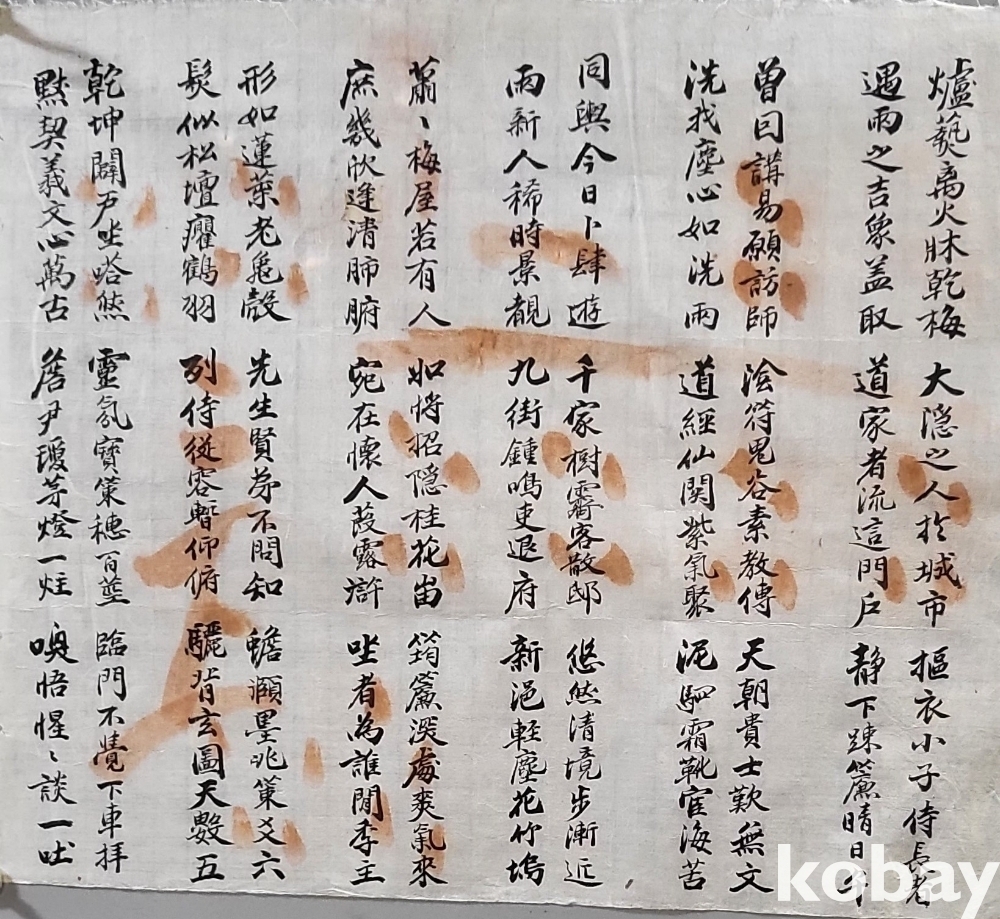 爐爇离火牀乾梅
遇雨之吉象盖取
大隐之人於城市
道家者流這門户
摳衣小子侍長老
静下踈簾晴日午
曾回講易願訪師
洗我塵心如洗雨
陰符鬼谷素教傳
道經仙関紫氣聚
天朝貴士歎無文
泥駟霜靴宦海苦
同輿今日卜肆遊
雨新人稀時景覩
千家樹霽客散邸
九街鍾鳴吏退府
悠然清境步漸近
新浥軽塵花竹塢
蕭〻梅屋若有人
庶幾欣逢清肺腑
如将招隐桂花畄
宛在懷人葭露滸
筠簾深處爽氣來
坐者為誰閒季主
形如蓮葉老龜殼
髮似松壇癯鶴羽
先生賢為不問知
列侍従容暫仰俯
蟾墨兆策爻六
驪背玄圖天數五
乾坤闢户坐嗒然
黙契羲文心萬古
靈氛寶策穗百莖
詹尹瓊茅燈一炷
臨門不覺下車拜
喚悟惺〻談一吐
kobay